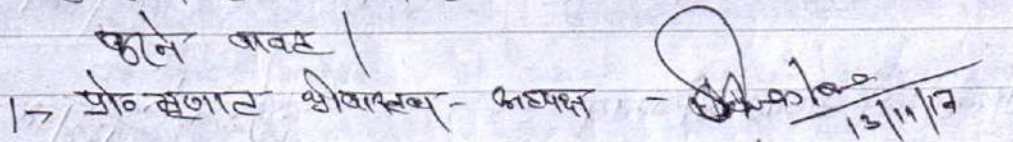 करने बाबद |
1→ प्रो० मृणाल श्रीवास्तव - अध्यक्ष - 13/11/17